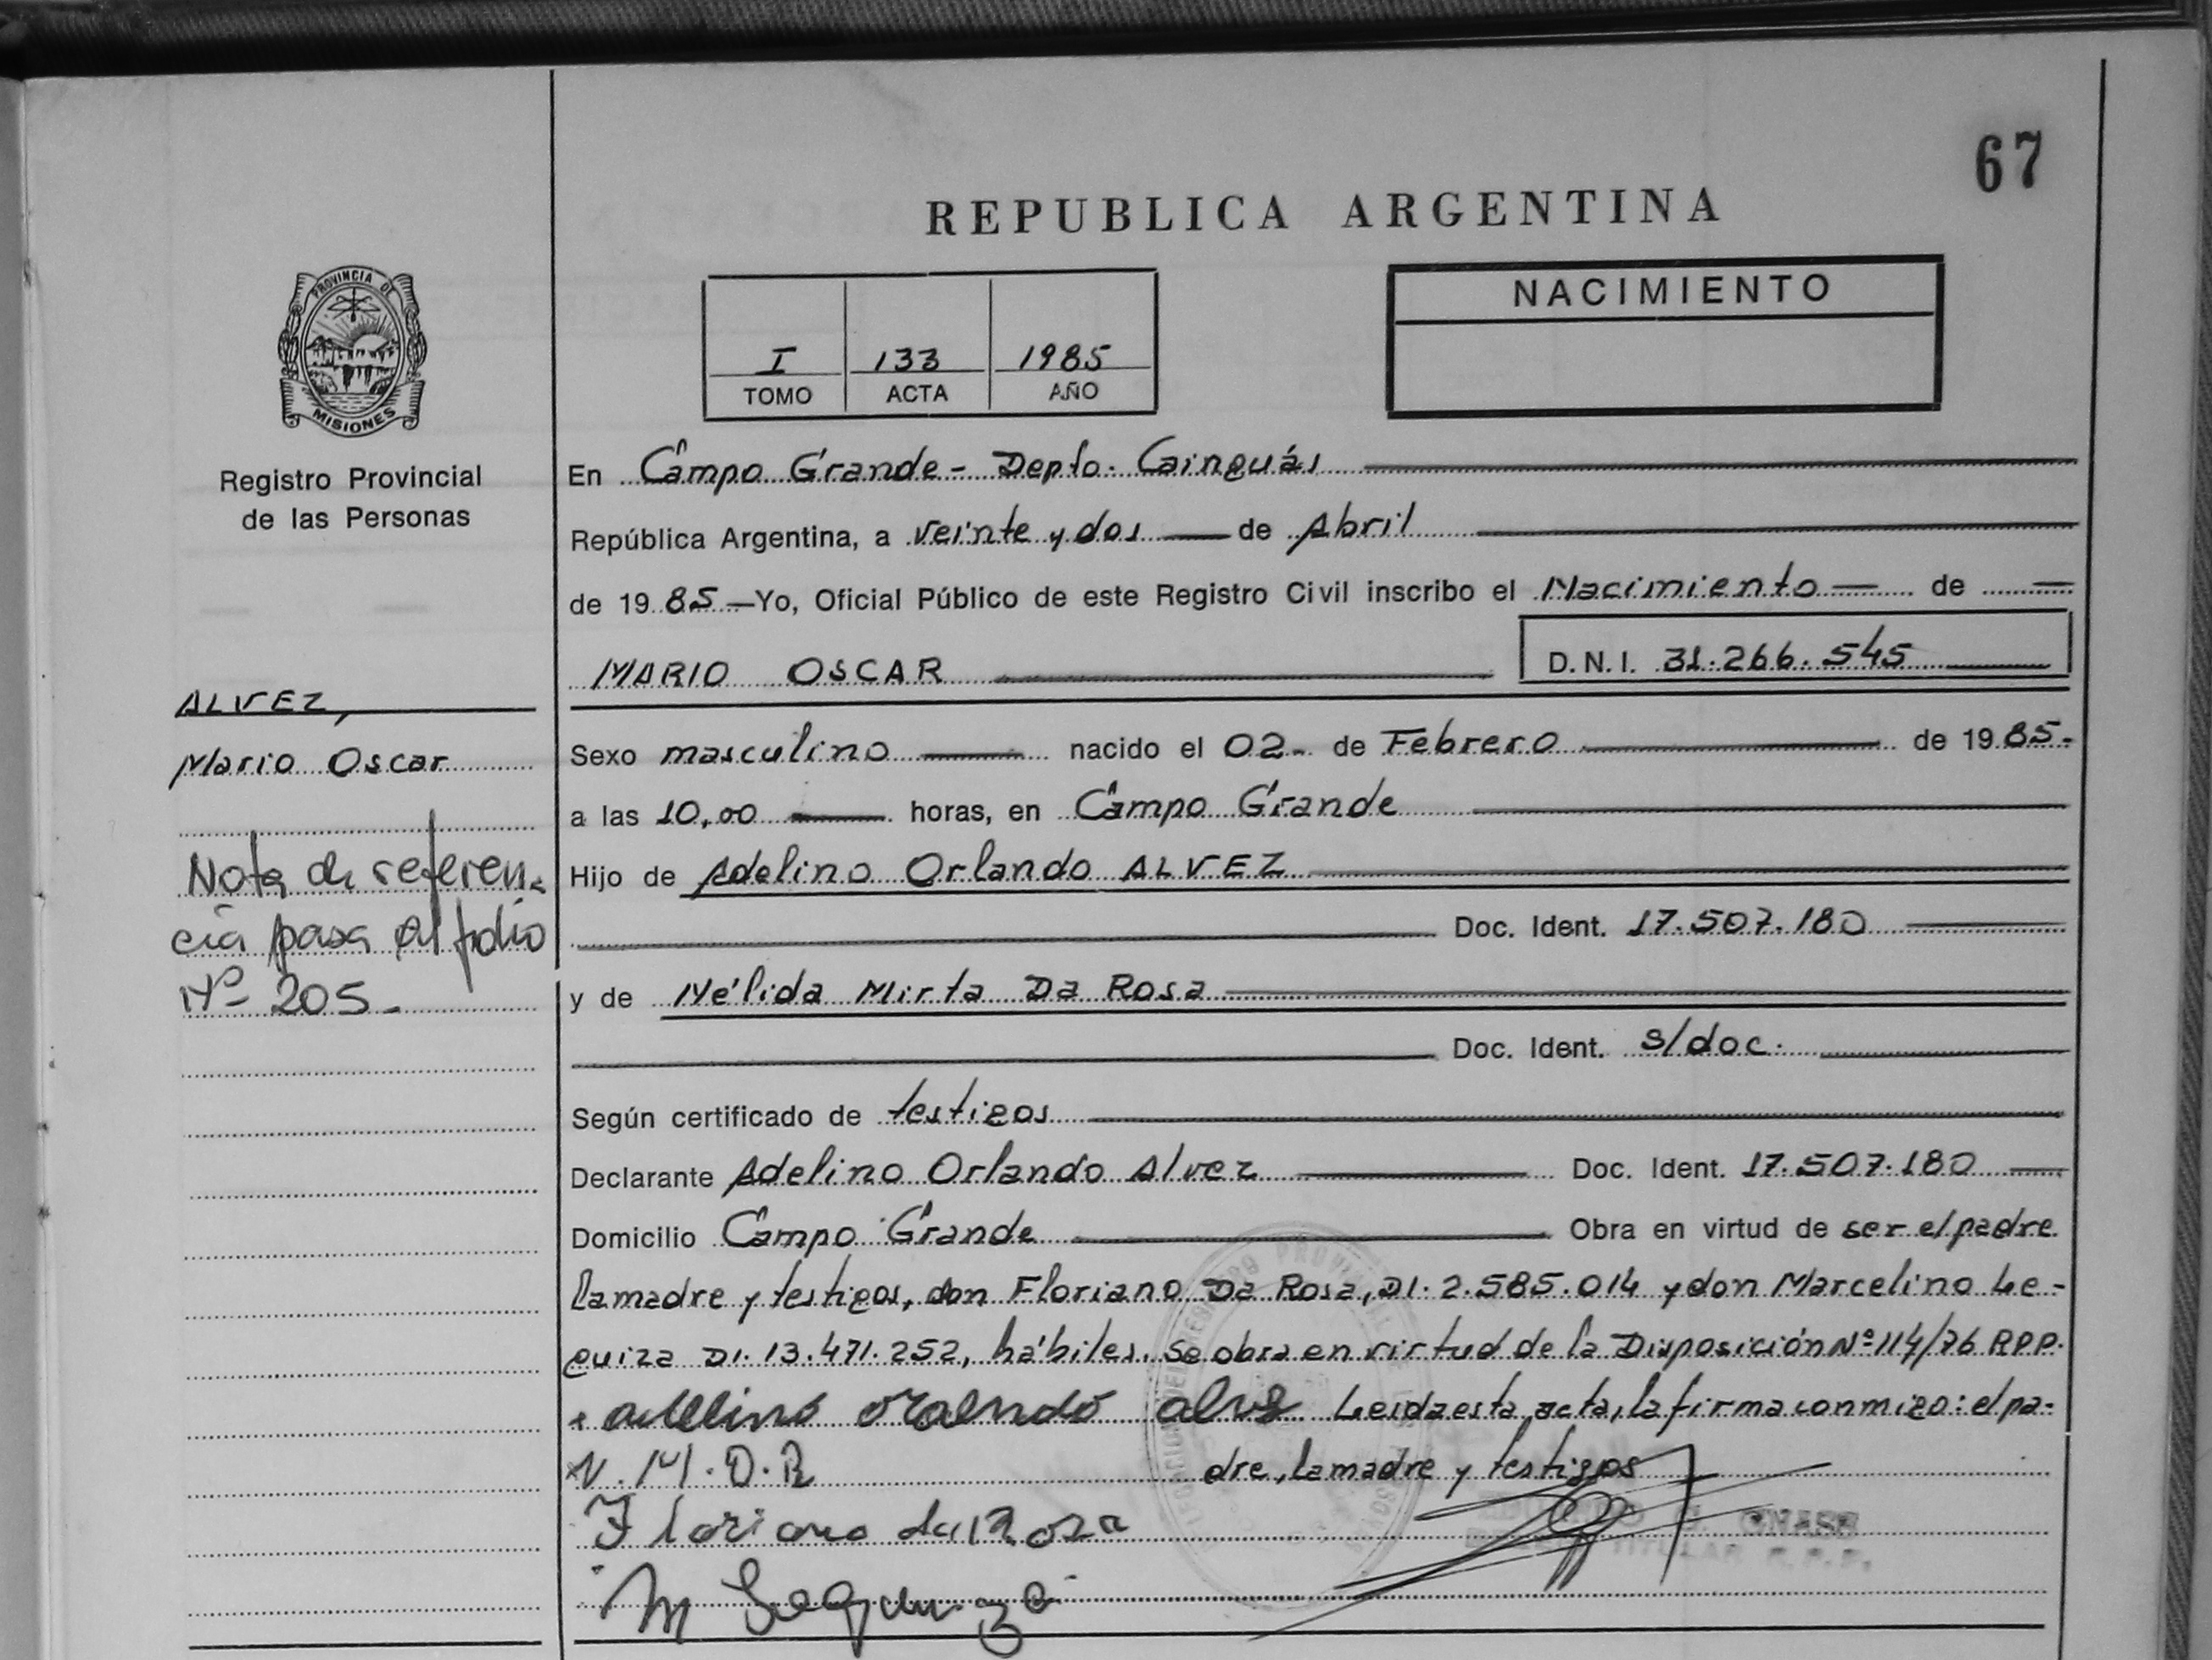 67
REPUBLICA ARGENTINA
PROVINCIA DE
MISIONES
Registro Provincial
de las Personas
I 133 1985
TOMO ACTA AÑO
NACIMIENTO
En Campo Grande - Depto. Cainguás
República Argentina, a veinte y dos de Abril
de 1985 Yo, Oficial Público de este Registro Civil inscribo el Nacimiento de
MARIO OSCAR D.N.I. 31.266.545
ALVEZ,
Mario Oscar
Nota de referen-
cia pasa al folio
Nº 205.
Sexo masculino nacido el 02 - de Febrero de 1985.
a las 10,00 horas, en Campo Grande
Hijo de Adelino Orlando ALVEZ
Doc. Ident. 17.507.180
y de Nélida Mirta Da Rosa
Doc. Ident. s/doc.
Según certificado de testigos
Declarante Adelino Orlando Alvez Doc. Ident. 17.507.180
Domicilio Campo Grande Obra en virtud de ser el padre
la madre y testigos, don Floriano Da Rosa, DI. 2.585.014 y don Marcelino Le-
guiza DI. 13.471.252, hábiles. Se obra en virtud de la Disposición Nº 114/76 RPP.
adelino orlando alvez Leida esta acta, la firma conmigo: el pa-
N. M. D. R dre, la madre y testigos
Floriano da Rosa
TITULAR R.P.P.
M Leguiza